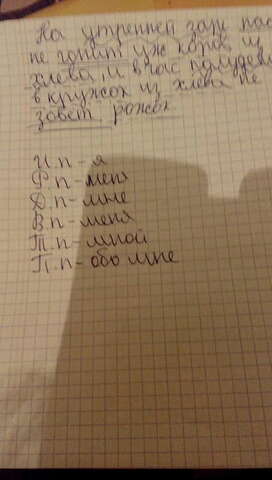 На утренней заре пас
не гонит уж коров из
хлева, и в час полуден
в кружок из хлева не
зовёт рожок
И.п - я
Р.п - меня
Д.п - мне
В.п - меня
Т.п - мной
П.п - обо мне